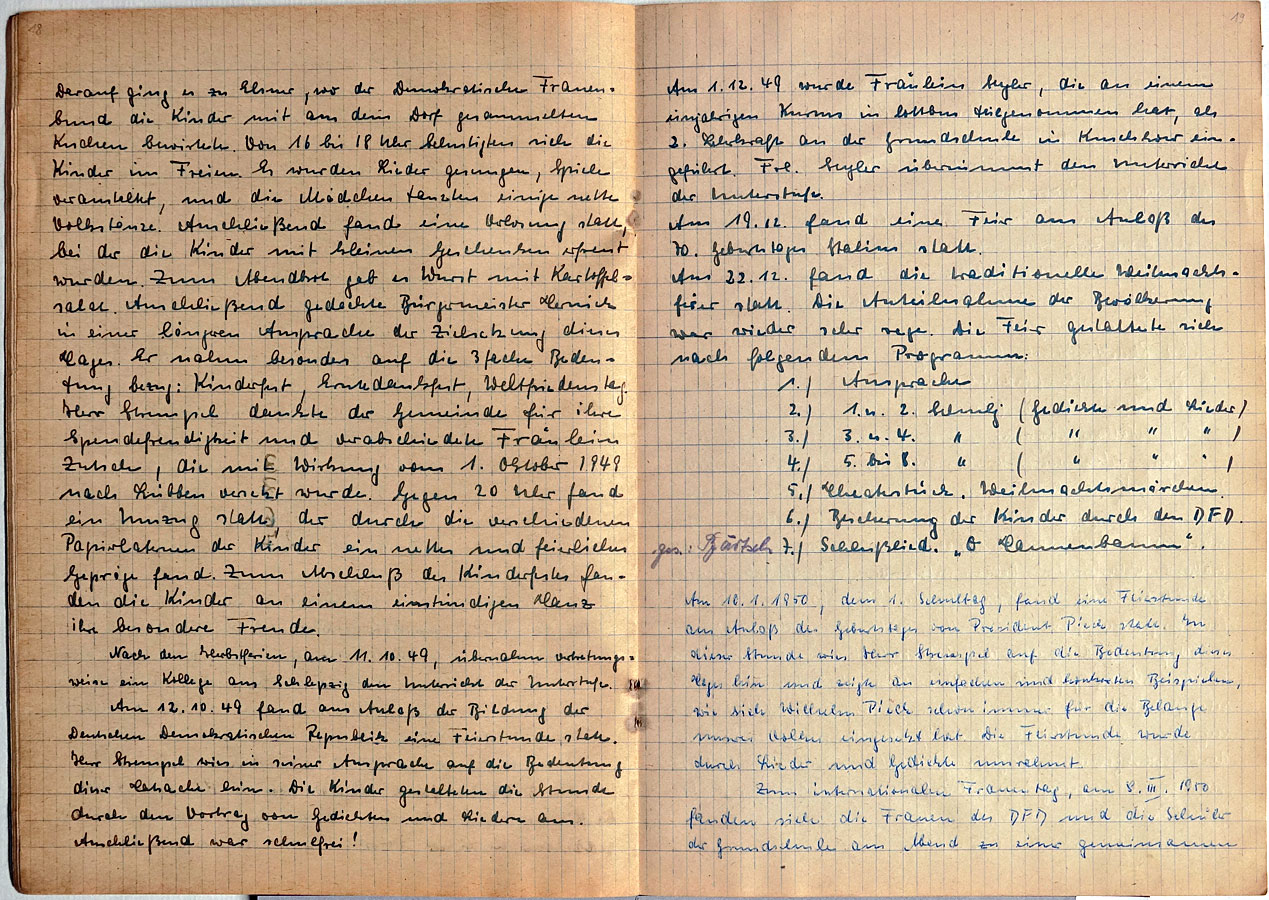 18
Darauf ging es zu Elsner, wo der Demokratische Frauen-
bund die Kinder mit aus dem Dorf gesammelten
Kuchen bewirtete. Von 16 bis 18 Uhr belustigten sich die
Kinder im Freien. Es wurden Lieder gesungen, Spiele
veranstaltet, und die Mädchen tanzten einige nette
Volkstänze. Anschließend fand eine Verlosung statt,
bei der die Kinder mit kleinen Geschenken erfreut
wurden. Zum Abendbrot gab es Wurst mit Kartoffel-
salat. Anschließend gedachte Bürgermeister
in einer längeren Ansprache der Zielsetzung dieses
Tages. Er nahm besonders auf die 3fache Bedeu-
tung bezug: Kinderfest, Erntedankfest, Weltfriedenstag.
Herr Strempel dankte der Gemeinde für ihre
Spendefreudigkeit und verabschiedete Fräulein
die mit Wirkung vom 1. Oktober 1949
nach Lübben versetzt wurde. Gegen 20 Uhr fand
ein Umzug statt, der durch die verschiedenen
Papierlaternen der Kinder ein nettes und feierliches
Gepräge fand. Zum Abschluß des Kinderfestes fan-
den die Kinder an einem einstündigen Tanz
ihre besondere Freude.
Nach den Herbstferien, am 11.10.49, übernahm vertretungs-
weise ein Kollege aus Schlepzig den Unterricht der Unterstufe.
Am 12.10.49 fand aus Anlaß der Bildung der
Deutschen Demokratischen Republik eine Feierstunde statt.
Herr Strempel wies in seiner Ansprache auf die Bedeutung
dieser Tatsache hin. Die Kinder gestalteten die Stunde
durch den Vortrag von Gedichten und Liedern aus.
Anschließend war schulfrei!
19
Am 1.12.49 wurde Fräulein Seyler, die an einem
einjährigen Kursus in Cottbus teilgenommen hat, als
2. Lehrkraft an der Grundschule in Kuschkow ein-
geführt. Frl. Seyler übernimmt den Unterricht
der Unterstufe.
Am 19.12. fand eine Feier aus Anlaß des
70. Geburtstages Stalins statt.
Am 22.12. fand die traditionelle Weihnachts-
feier statt. Die Anteilnahme der Bevölkerung
war wieder sehr rege. Die Feier gestaltete sich
nach folgendem Programm:
1.) Ansprache
2.) 1. u. 2. Schulj. (Gedichte und Lieder)
3.) 3. u. 4. " ( " " " )
4.) 5. bis 8. " ( " " " )
5.) Theaterstück. Weihnachtsmärchen.
6.) Bescherung der Kinder durch den DFD.
7.) Schlußlied. „O Tannenbaum".
ges.: Bärtsch
Am 10.1.1950, dem 1. Schultag, fand eine Feierstunde
aus Anlaß des Geburtstages von Präsident Pieck statt. In
dieser Stunde wies Herr Strempel auf die Bedeutung dieses
Tages hin und zeigte an einfachen und konkreten Beispielen,
wie sich Wilhelm Pieck schon immer für die Belange
unseres Volkes eingesetzt hat. Die Feierstunde wurde
durch Lieder und Gedichte umrahmt.
Zum internationalen Frauentag, am 8. III. 1950
fanden sich die Frauen des DFD und die Schüler
der Grundschule am Abend zu einer gemeinsamen